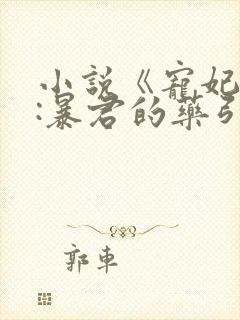 小說《寵妃
:暴君的藥引
郭車